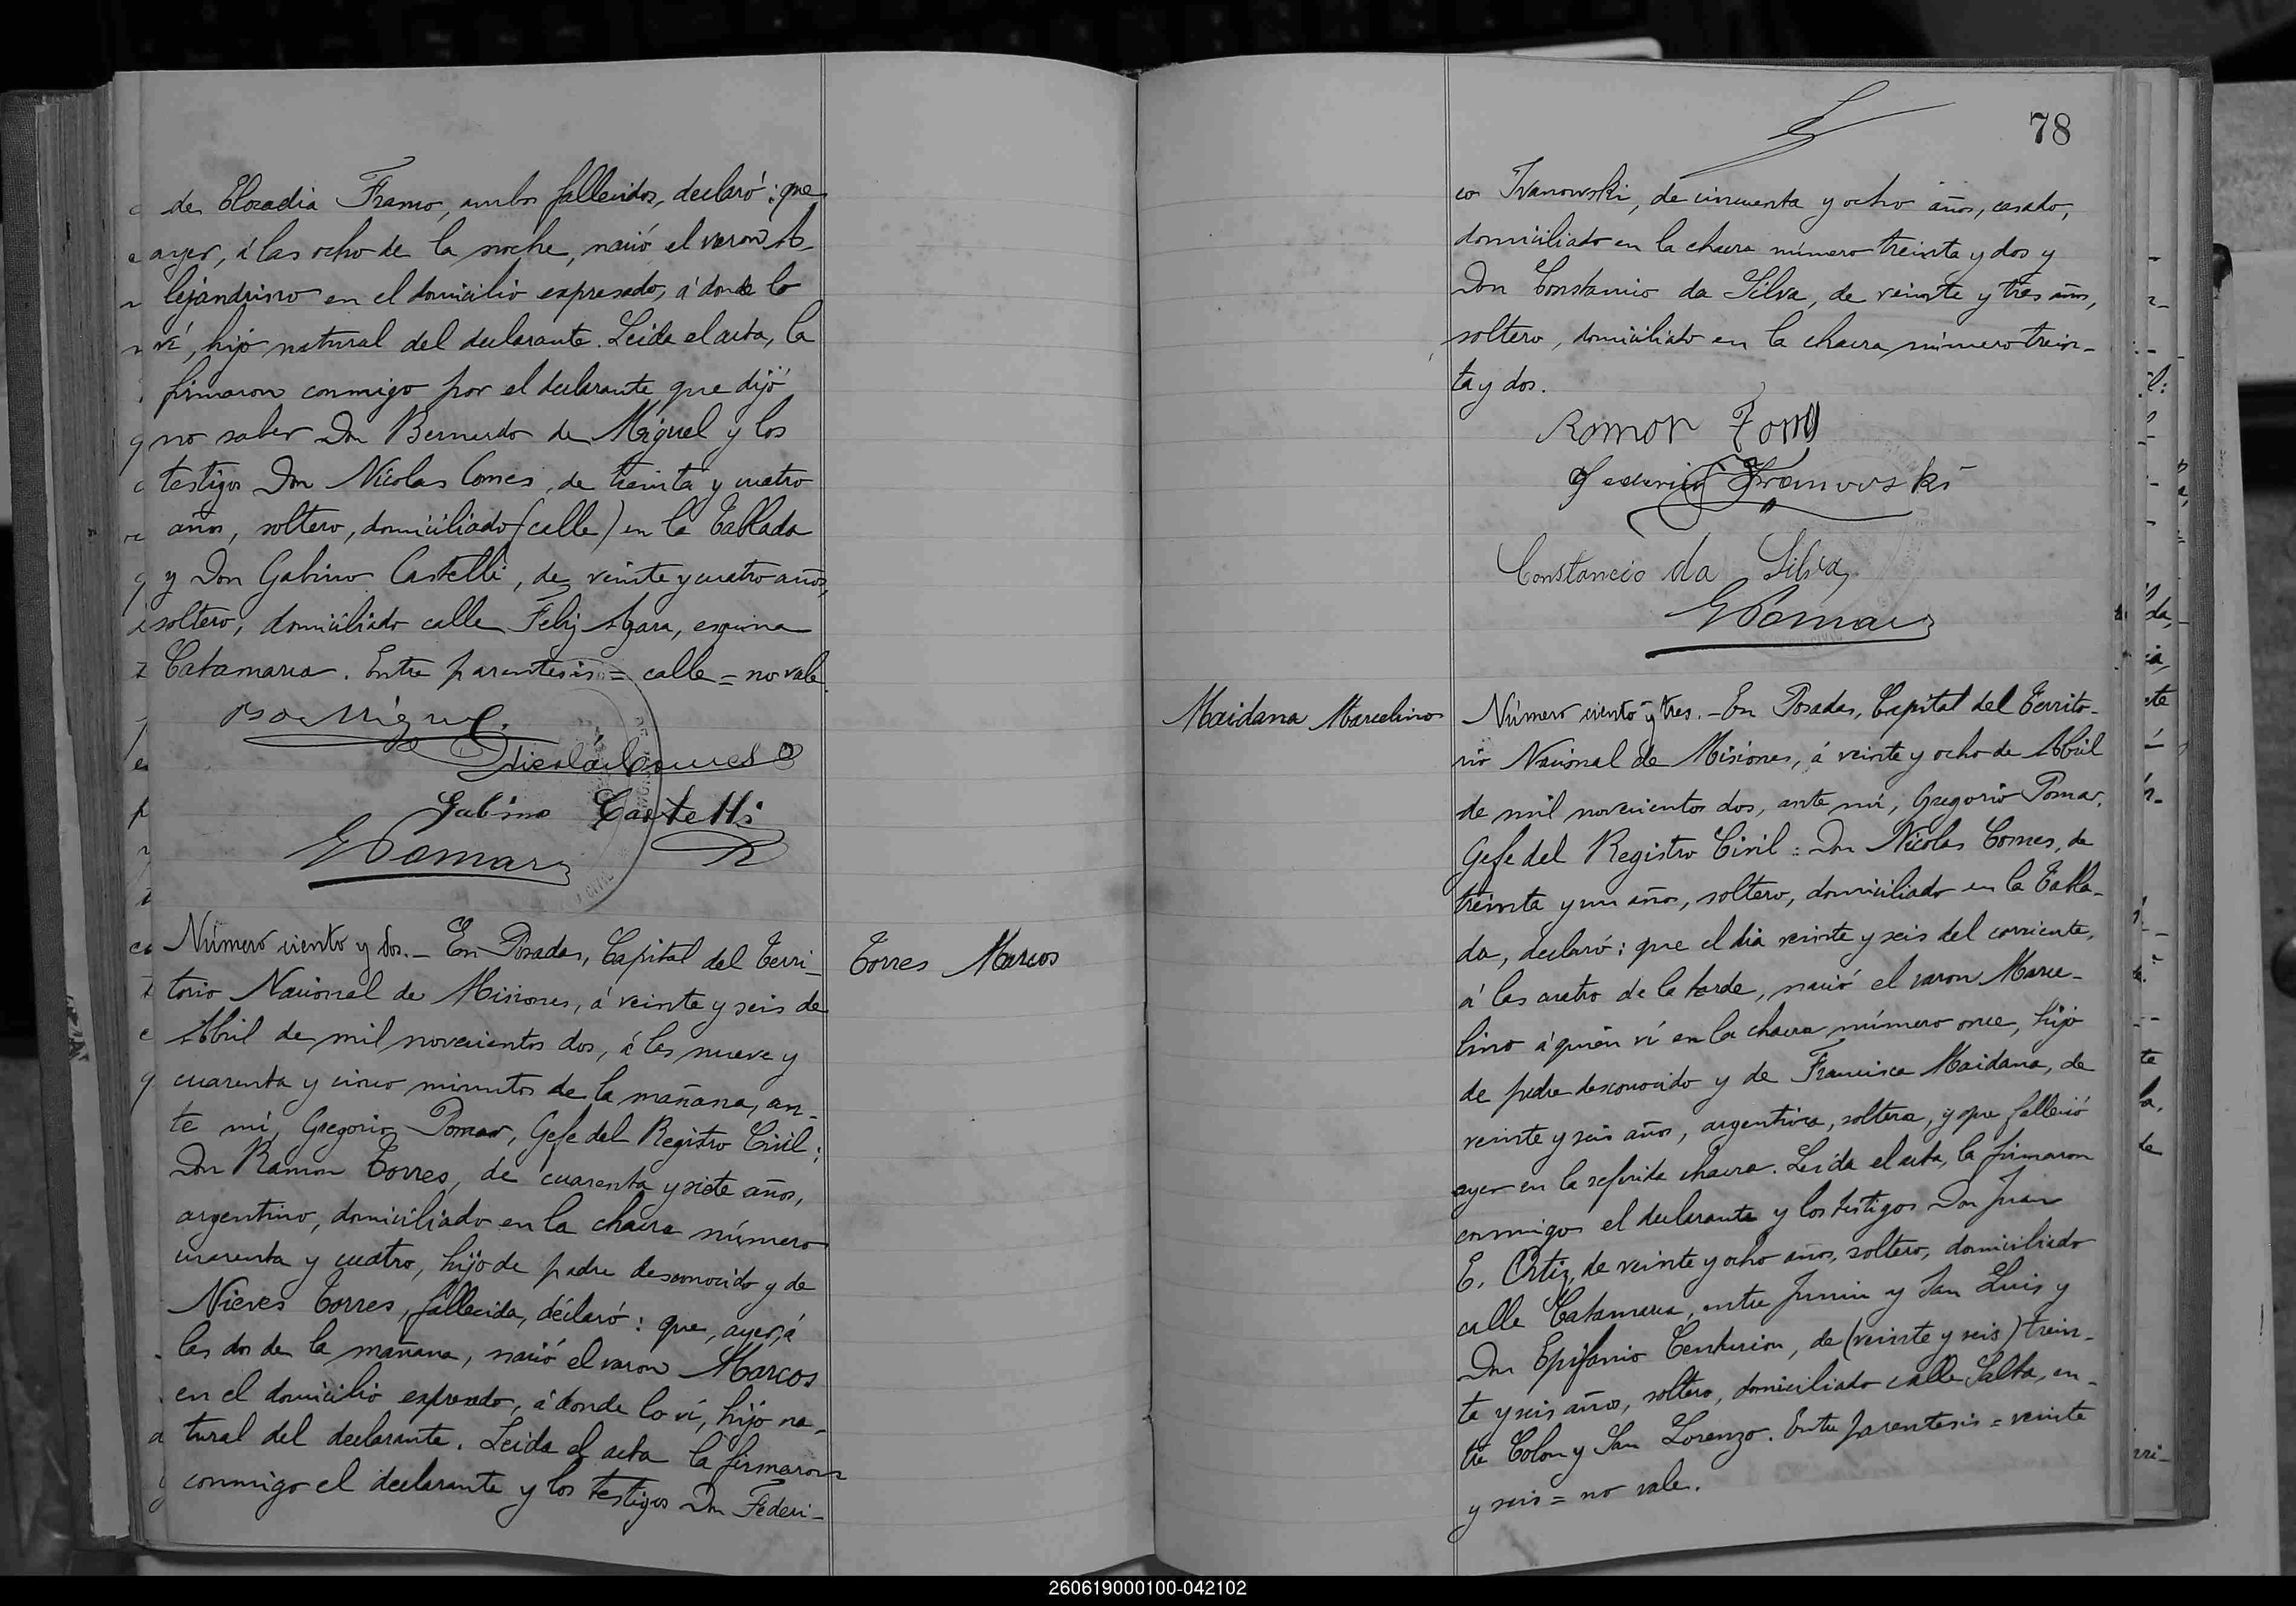 de Elocadia Framo, ambos fallecidos, declaró: que
ayer, á las ocho de la noche, nació el varon A-
lejandrino en el domicilio expresado, á donde lo
ví, hijo natural del declarante. Leida el acta, la
firmaron conmigo por el declarante que dijó
no saber Don Bernardo de Miguel y los
testigos Don Nicolas Comes, de treinta y cuatro
años, soltero, domiciliado (calle) en la Tablada
y Don Gabino Castelli, de veinte y cuatro años,
soltero, domiciliado calle Feliz Azara, esquina
Catamarca. Entre parentesis = calle = no vale.
Bdo de Miguel.
Nicolás Comes
Gabino Castelli
G Pomar
Torres Marcos
Número ciento y dos. - En Posadas, Capital del Terri-
torio Nacional de Misiones, á veinte y seis de
Abril de mil novecientos dos, á las nueve y
cuarenta y cinco minutos de la mañana, an-
te mí, Gregorio Pomar, Gefe del Registro Civil:
Don Ramon Torres, de cuarenta y siete años,
argentino, domiciliado en la chacra número
cuarenta y cuatro, hijo de padre desconocido y de
Nieves Torres, fallecida, declaró: que, ayer, á
las dos de la mañana, nació el varon Marcos
en el domicilio expresado, á donde lo ví, hijo na-
tural del declarante. Leida el acta la firmaron
conmigo el declarante y los testigos Don Federi-
78
co Ivanowski, de cincuenta y ocho años, casado,
domiciliado en la chacra número treinta y dos y
Don Constancio da Silva, de veinte y tres años,
soltero, domiciliado en la chacra número trein-
ta y dos.
Ramon
Federico
Constancio da Silva
G Pomar
Maidana Marcelino
Número ciento y tres. - En Posadas, Capital del Territo-
rio Nacional de Misiones, á veinte y ocho de Abril
de mil novecientos dos, ante mí, Gregorio Pomar,
Gefe del Registro Civil: Don Nicolas Comes, de
treinta y un años, soltero, domiciliado en la Tabla-
da, declaró: que el dia veinte y seis del corriente,
á las cuatro de la tarde, nació el varon Marce-
lino á quién ví en la chacra número once, hijo
de padre desconocido y de Francisca Maidana, de
veinte y seis años, argentina, soltera, y que falleció
ayer en la referida chacra. Leida el acta, la firmaron
conmigo el declarante y los testigos Don Juan
E. Ortiz, de veinte y ocho años, soltero, domiciliado
calle Catamarca, entre Junin y San Luis y
Don Epifanio Centurion, de (veinte y seis) trein-
ta y seis años, soltero, domiciliado calle Salta, en-
tre Colon y San Lorenzo. Entre parentesis = veinte
y seis = no vale.
260619000100-042102